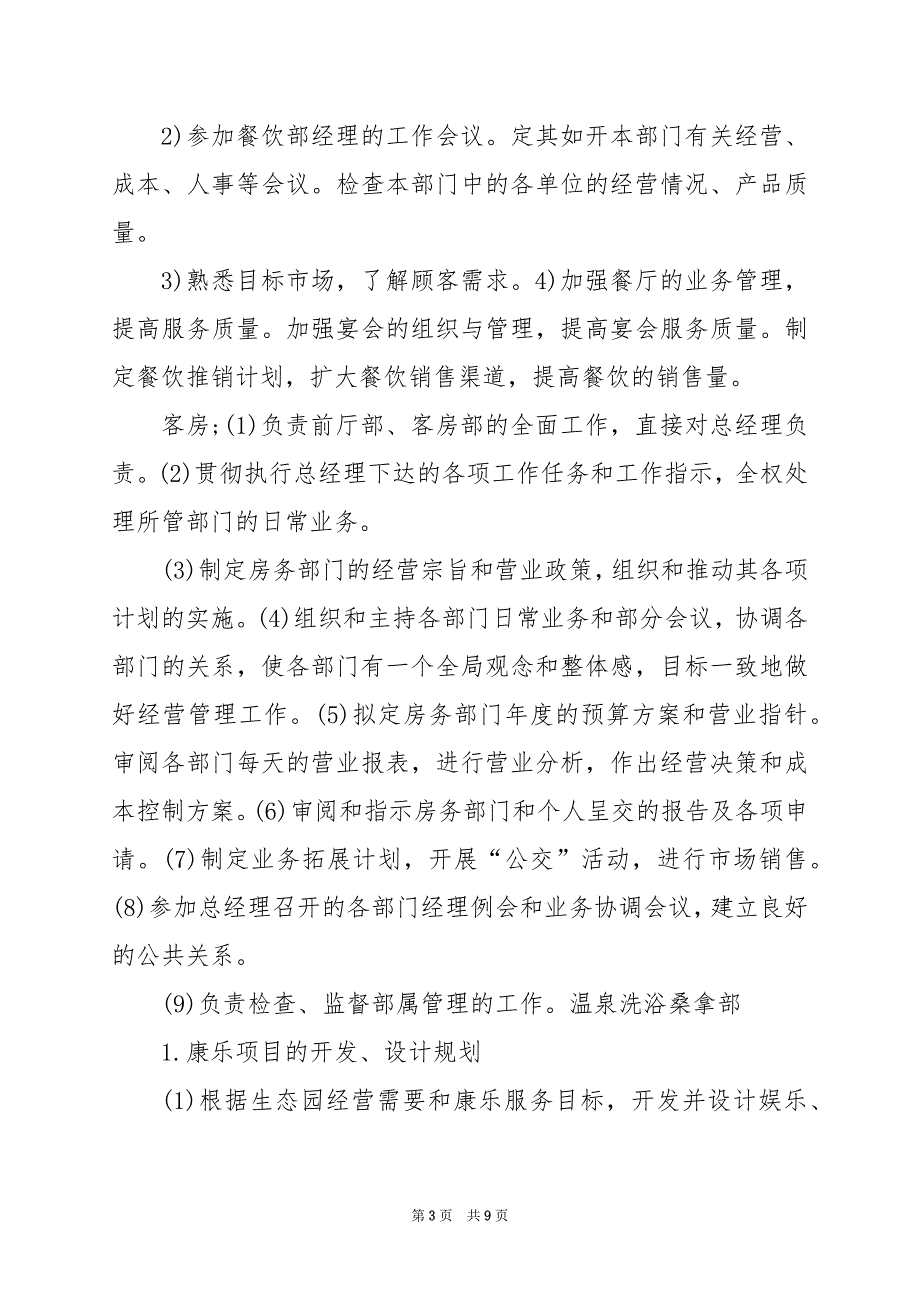 2)参加餐饮部经理的工作会议。定其如开本部门有关经营、
成本、人事等会议。检查本部门中的各单位的经营情况、产品质
量。
3)熟悉目标市场，了解顾客需求。4)加强餐厅的业务管理，
提高服务质量。加强宴会的组织与管理，提高宴会服务质量。制
定餐饮推销计划，扩大餐饮销售渠道，提高餐饮的销售量。
客房;(1)负责前厅部、客房部的全面工作，直接对总经理负
责。(2)贯彻执行总经理下达的各项工作任务和工作指示，全权处
理所管部门的日常业务。
(3)制定房务部门的经营宗旨和营业政策，组织和推动其各项
计划的实施。(4)组织和主持各部门日常业务和部分会议，协调各
部门的关系，使各部门有一个全局观念和整体感，目标一致地做
好经营管理工作。(5)拟定房务部门年度的预算方案和营业指针。
审阅各部门每天的营业报表，进行营业分析，作出经营决策和成
本控制方案。(6)审阅和指示房务部门和个人呈交的报告及各项申
请。(7)制定业务拓展计划，开展“公交”活动，进行市场销售。
(8)参加总经理召开的各部门经理例会和业务协调会议，建立良好
的公共关系。
(9)负责检查、监督部属管理的工作。温泉洗浴桑拿部
1.康乐项目的开发、设计规划
(1)根据生态园经营需要和康乐服务目标，开发并设计娱乐、
第 3 页 共 9 页